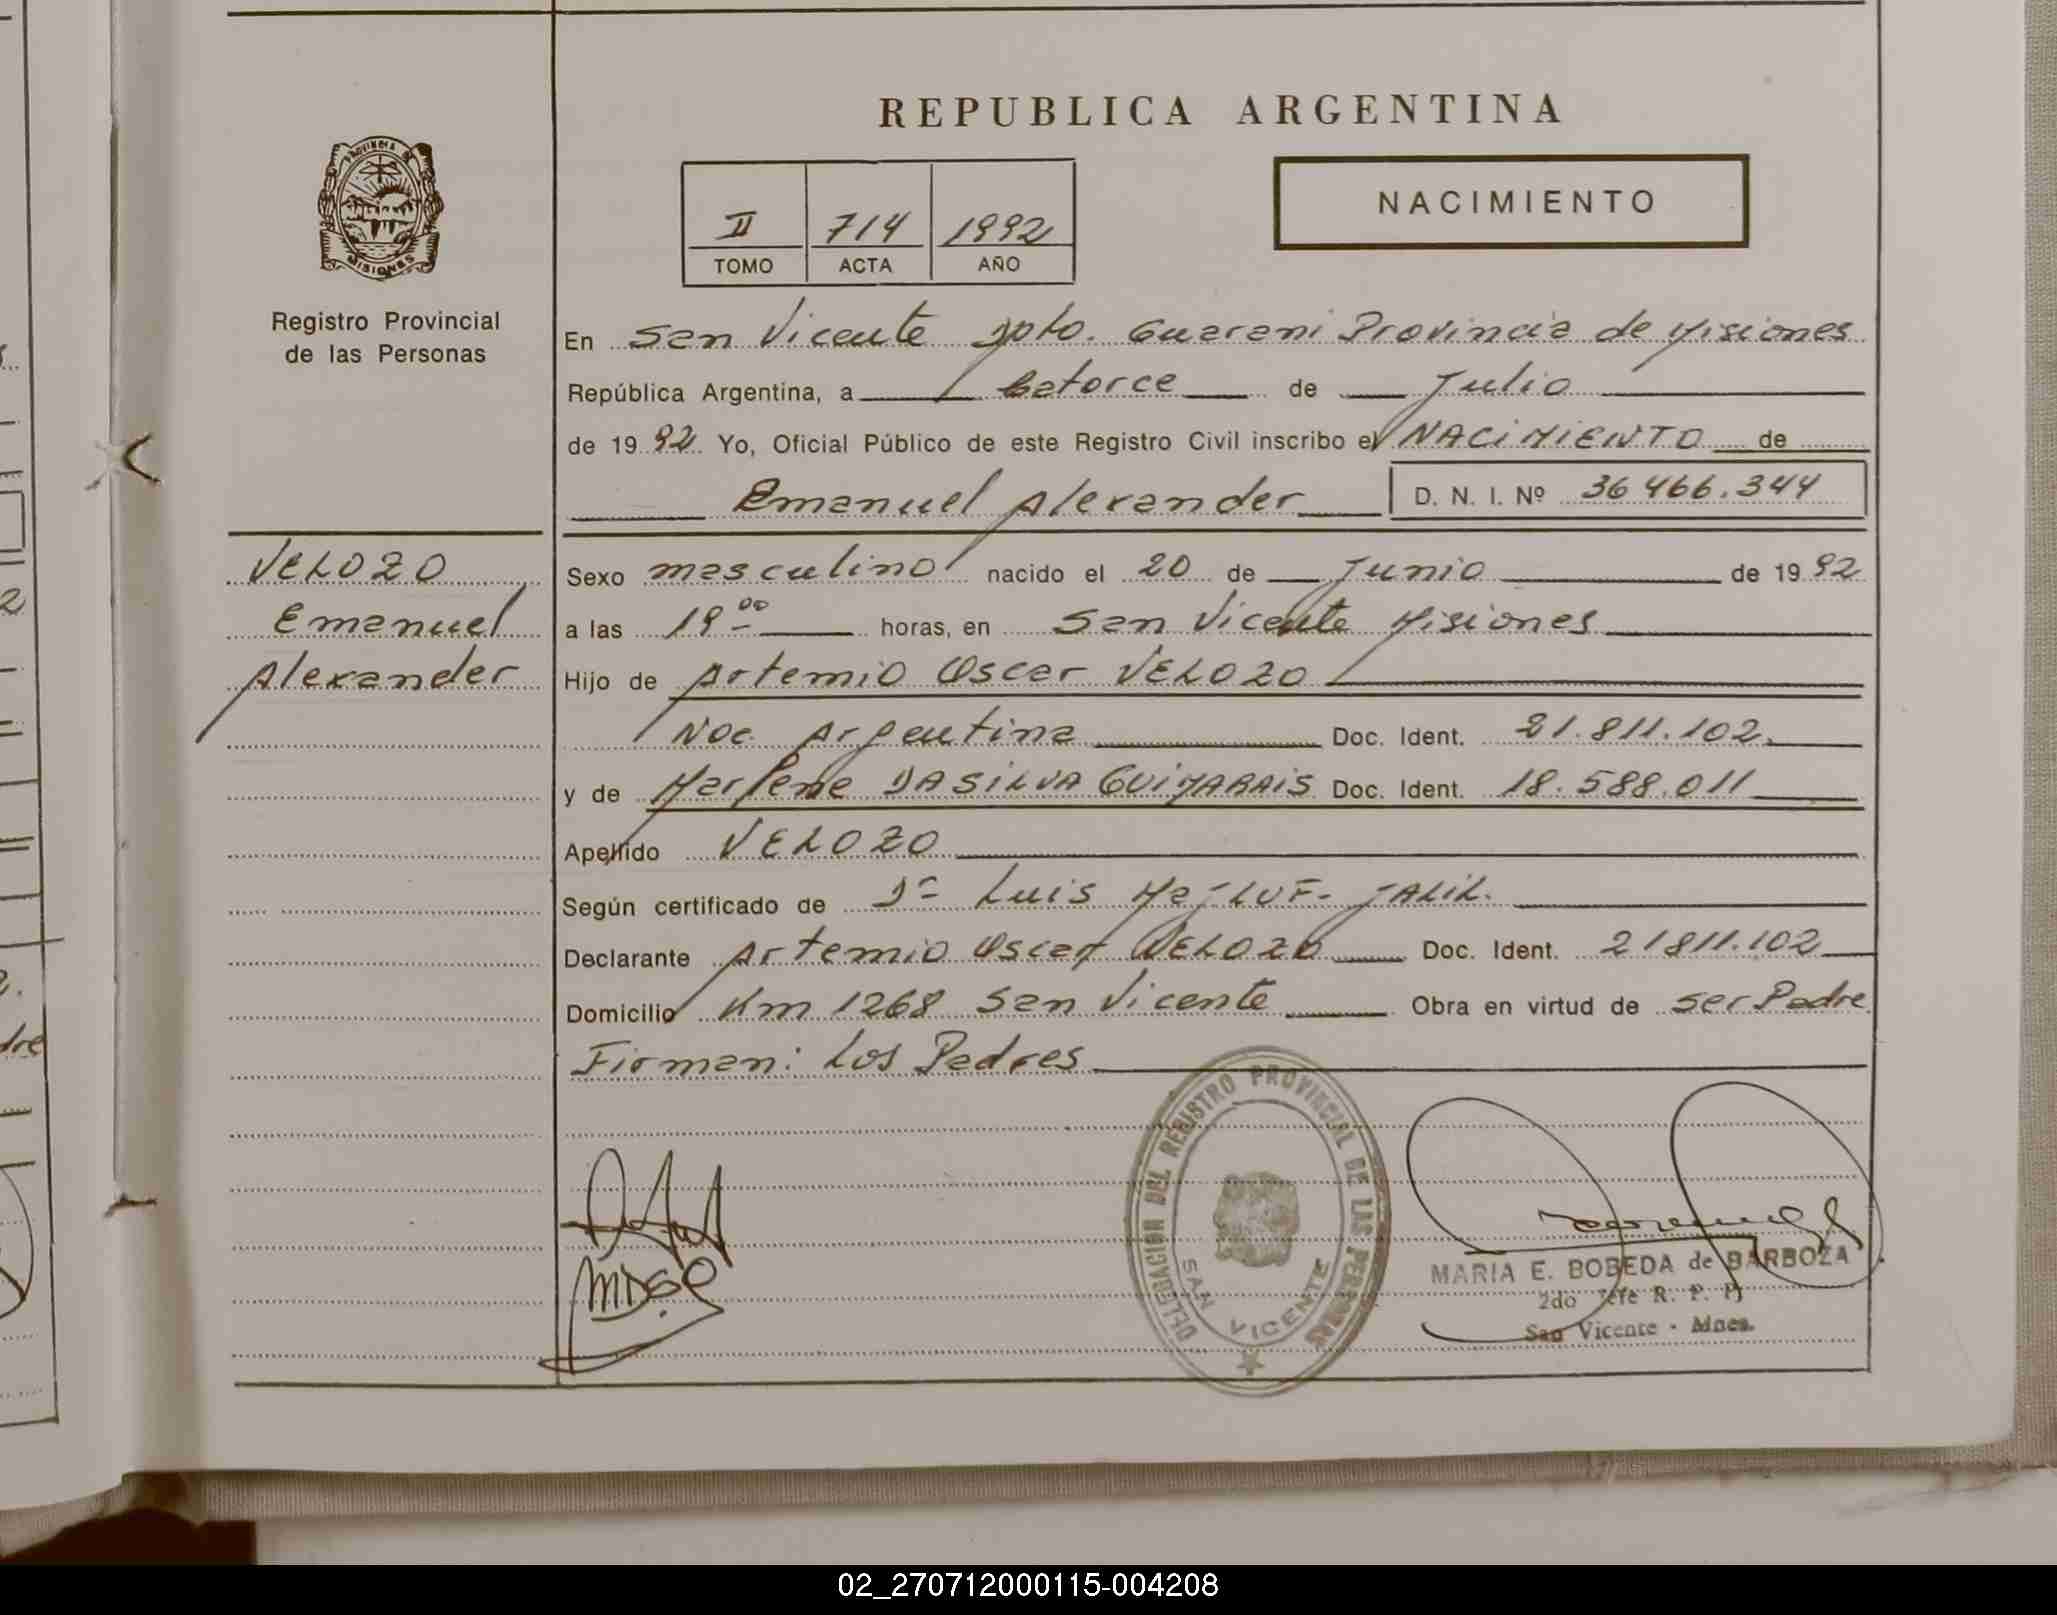 REPUBLICA ARGENTINA
PROVINCIA DE
MISIONES
Registro Provincial
de las Personas
II 714 1992
TOMO ACTA AÑO
NACIMIENTO
En San Vicente Dpto. Guarani Provincia de Misiones
República Argentina, a Catorce de Julio
de 1992 Yo, Oficial Público de este Registro Civil inscribo el NACIMIENTO de
Emanuel Alexander D. N. I. Nº 36466.344
VELOZO
Emanuel
Alexander
Sexo masculino nacido el 20 de Junio de 1992
a las 19 00 horas, en San Vicente Misiones
Hijo de Artemio Oscar VELOZO
Nac. Argentina Doc. Ident. 21.811.102
y de Marlene DA SILVA GUIMARAIS Doc. Ident. 18.588.011
Apellido VELOZO
Según certificado de Dr Luis MaJLUF- JALIL.
Declarante Artemio Oscar VELOZO Doc. Ident. 21811.102
Domicilio Km 1268 San Vicente Obra en virtud de ser Padre
Firman: Los Padres
DELEGACION DEL REGISTRO PROVINCIAL DE LAS PERSONAS
SAN VICENTE
MDSG
MARIA E. BOBEDA de BARBOZA
2do Jefe R. P. P.
San Vicente - Mnes.
02_270712000115-004208